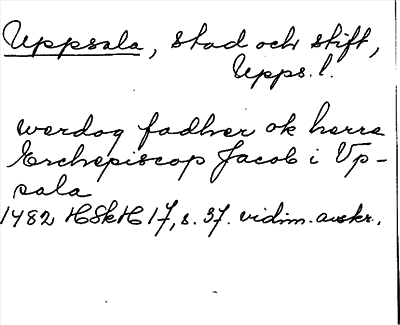 Uppsala, stad och stift,
Upps. l.
werdog fadher ok herra
Erchepiscop Jacob i Vp-
sala
1482 HSkH 17, s. 37. vidim. avskr.